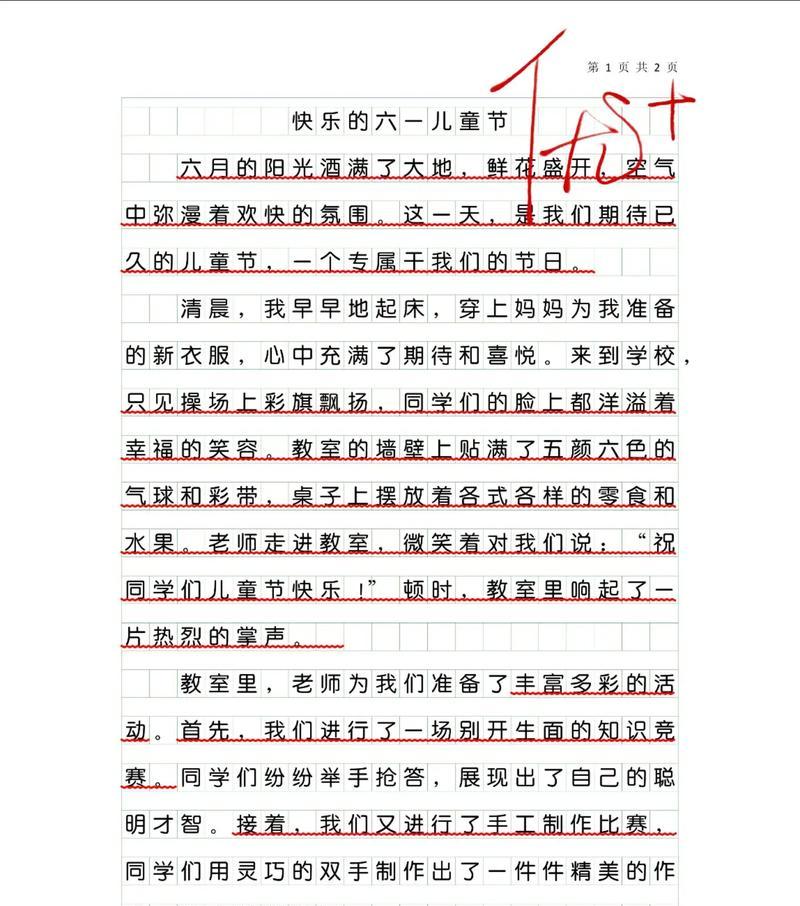 第 1 页 共 2 页
优+
快乐的六一儿童节
六月的阳光洒满了大地，鲜花盛开，空气
中弥漫着欢快的氛围。这一天，是我们期待已
久的儿童节，一个专属于我们的节日。
清晨，我早早地起床，穿上妈妈为我准备
的新衣服，心中充满了期待和喜悦。来到学校，
只见操场上彩旗飘扬，同学们的脸上都洋溢着
幸福的笑容。教室的墙壁上贴满了五颜六色的
气球和彩带，桌子上摆放着各式各样的零食和
水果。老师走进教室，微笑着对我们说：“祝
同学们儿童节快乐！”顿时，教室里响起了一
片热烈的掌声。
教室里，老师为我们准备了丰富多彩的活
动。首先，我们进行了一场别开生面的知识竞
赛。同学们纷纷举手抢答，展现出了自己的聪
明才智。接着，我们又进行了手工制作比赛，
同学们用灵巧的双手制作出了一件件精美的作